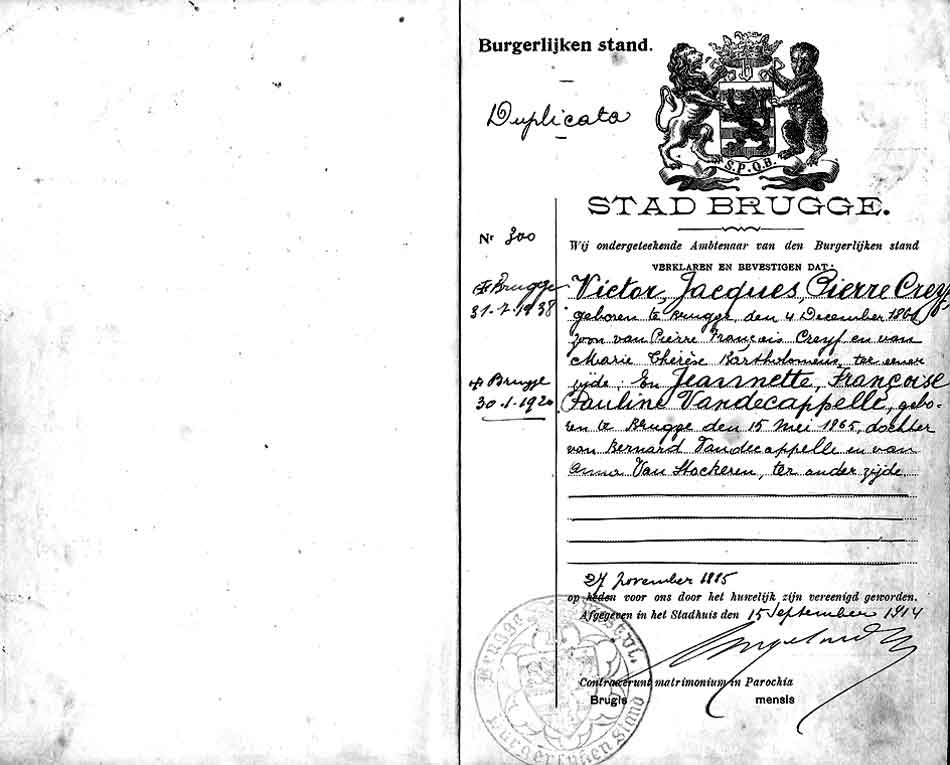 Burgerlijken stand.
Duplicata
S.P.Q.B.
STAD BRUGGE.
Nr 300
Wij ondergeteekende Ambtenaar van den Burgerlijken stand
VERKLAREN EN BEVESTIGEN DAT:
Brugge
31-7-1938
Victor, Jacques, Pierre Creyf
geboren te Brugge, den 4 December 186
zoon van Pierre François Creyf en van
Marie Thérèse Bartholomeus, ter eener
Brugge
30.1.1920
zijde; En Jeannette, Françoise
Pauline Vandecappelle, gebo-
ren te Brugge den 15 Mei 1865, dochter
van Bernard Vandecappelle en van
Anna Van Hockeren, ter ander zijde.
27 november 1885
op heden voor ons door het huwelijk zijn vereenigd geworden.
Afgegeven in het Stadhuis den 15 September 1914
Contraxerunt matrimonium in Parochia
Brugis mensis
Brugge
Burgerlijken Stand